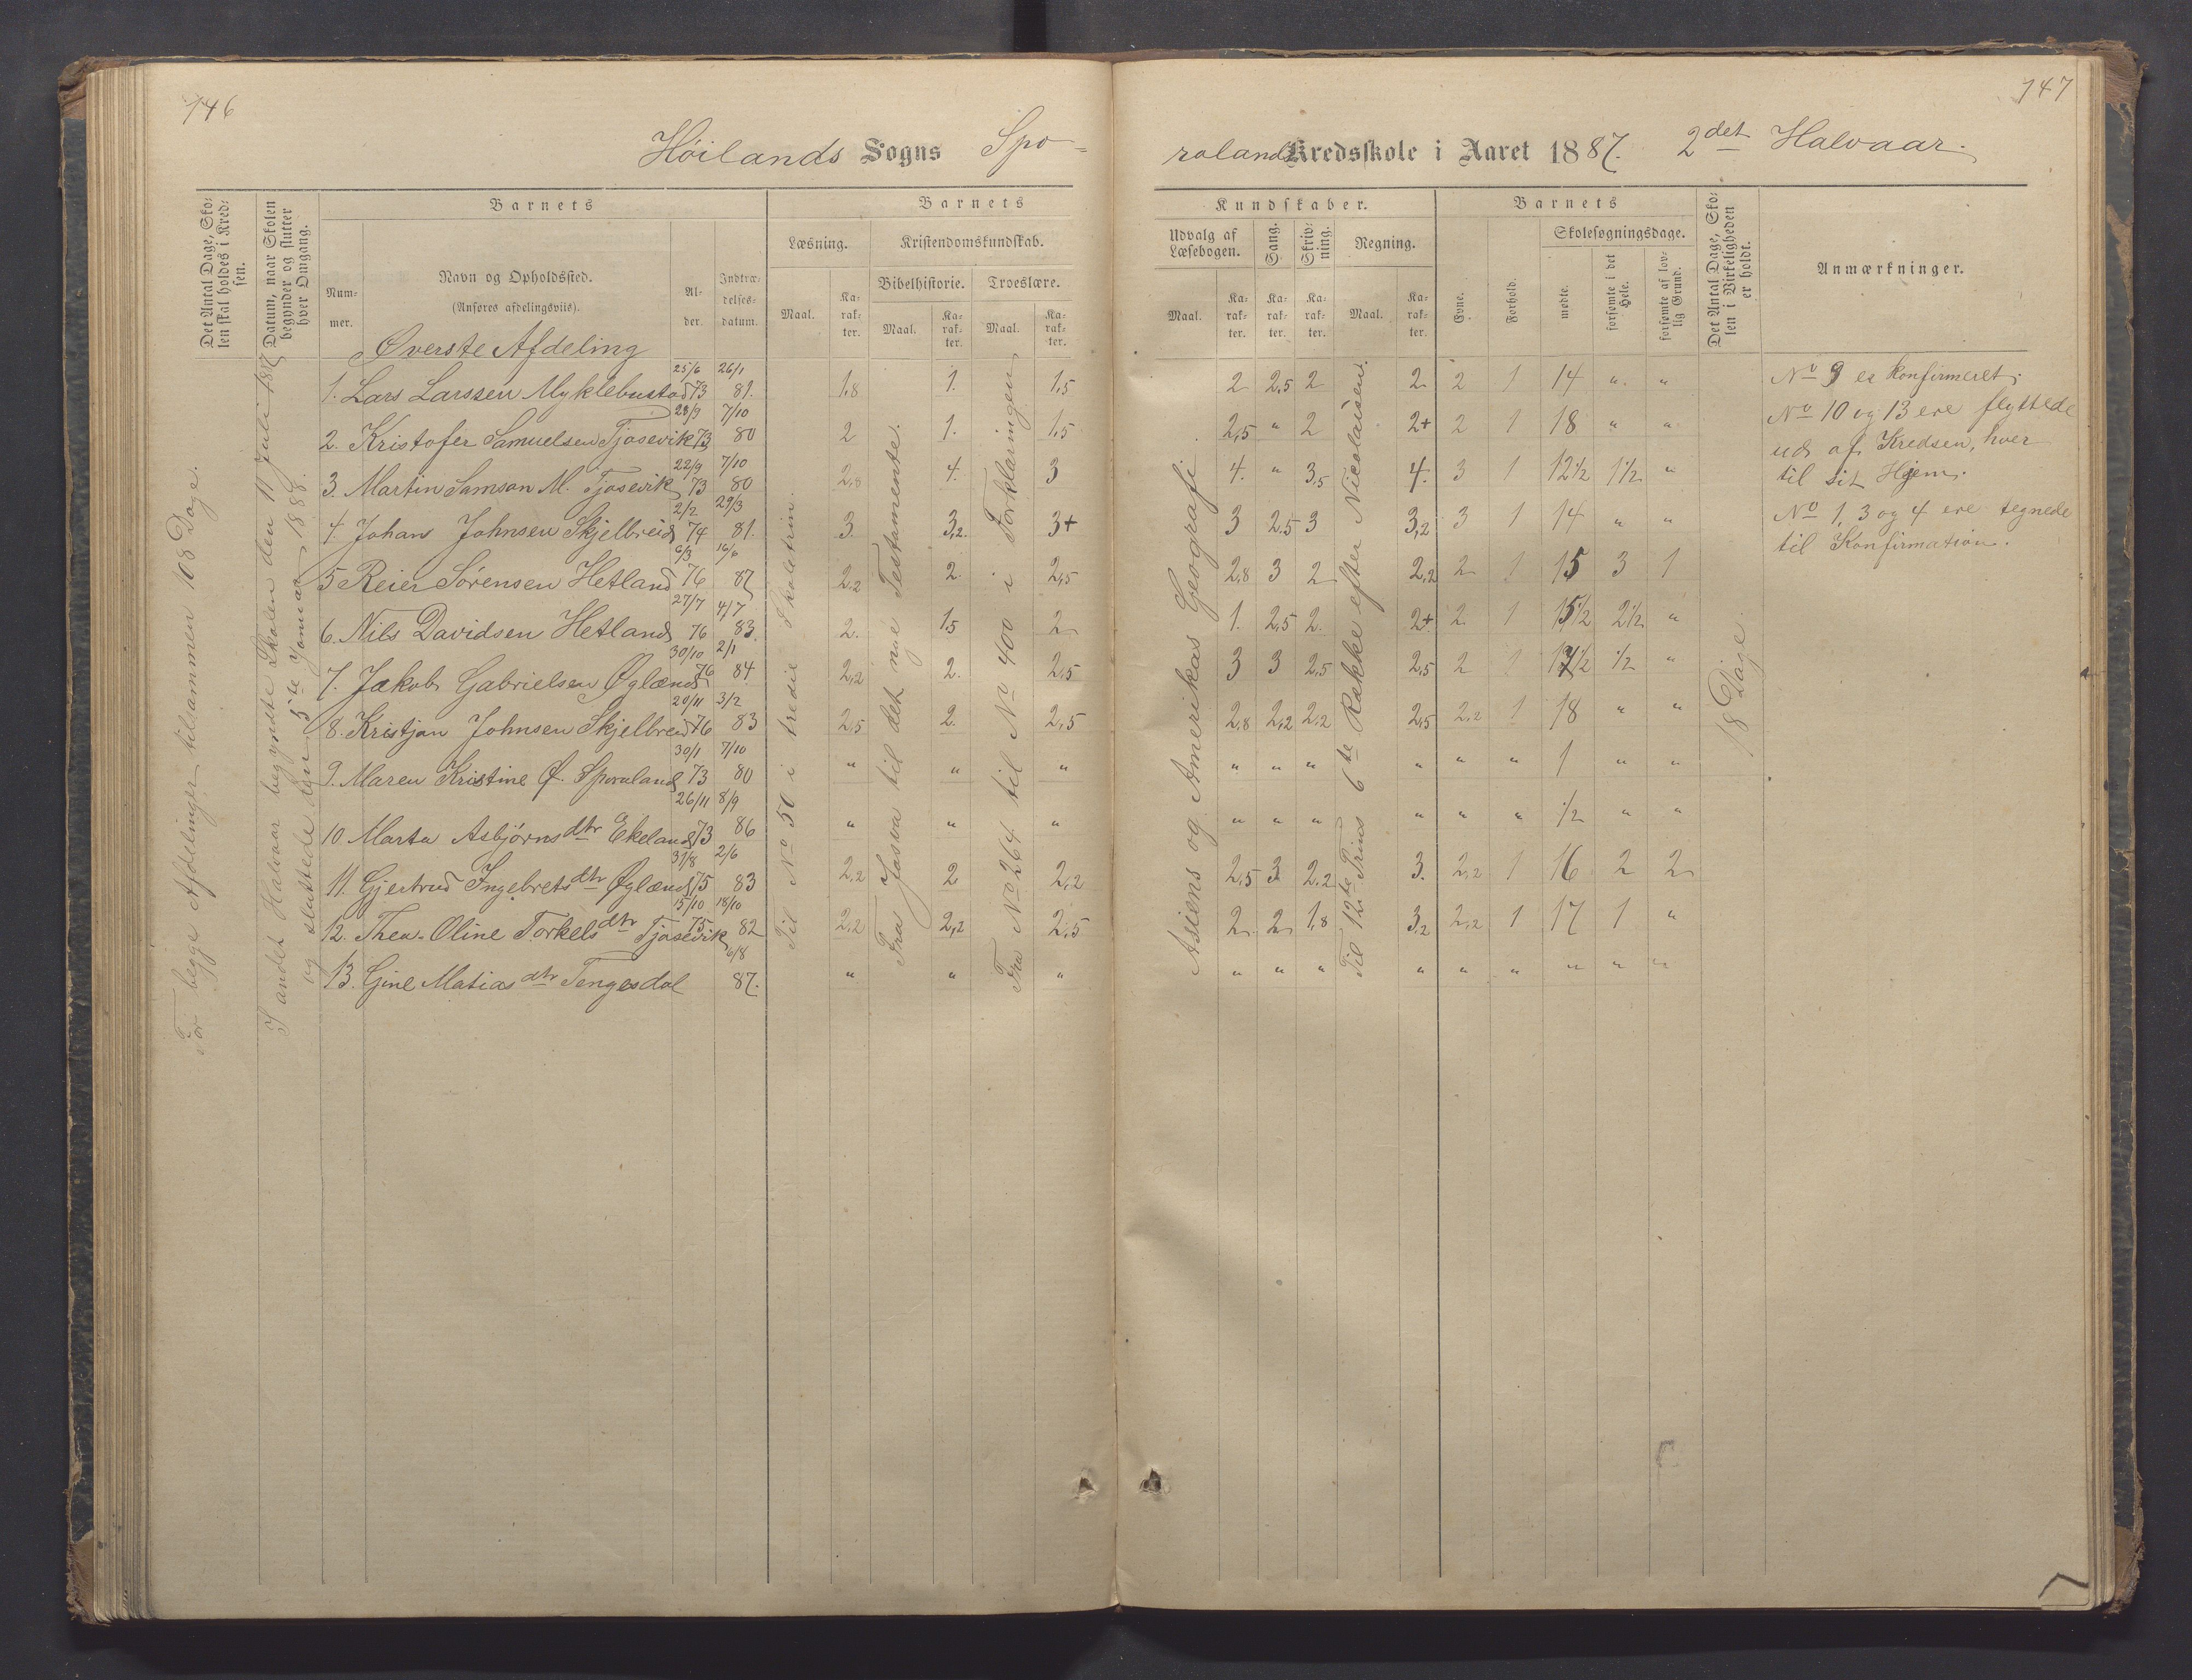 146
147
Høilands Sogns Spo=
rolands Kredsskole i Aaret 1887. 2det Halvaar.
Det Antal Dage, Skolen skal holdes i Kredsen.
Datum, naar Skolen begynder og slutter hver Omgang.
Barnets
Nummer.
Navn og Opholdssted.
(Anføres afdelingsviis).
Alder.
Indtrædelsesdatum.
Barnets
Læsning.
Kristendomskundskab.
Bibelhistorie. Troeslære.
Maal. Karakter. Maal. Karakter. Maal. Karakter.
Kundskaber.
Udvalg af Læsebogen. Sang. Skrivning. Regning.
Maal. Karakter. Karakter. Karakter. Maal. Karakter.
Barnets
Evne. Forhold.
Skolesøgningsdage.
mødte. forsømte i det Hele. forsømte af lovlig Grund.
Det Antal Dage, Skolen i Virkeligheden er holdt.
Anmærkninger.
For begge Afdelinger tilsammen 108 Dage.
I andet Halvaar begyndte Skolen den 11 Juli 1887
og sluttede den 5te Januar 1888.
Øverste Afdeling
1. Lars Larssen Myklebustad 25/6 73 26/1 81. 1,8 1. 1,5 2 2,5 2 2 2 1 14 " "
2. Kristofer Samuelsen Tjosevik 28/9 73 7/10 80 2 1. 1,5 2,5 " 2 2+ 2 1 18 " "
3. Martin Samson M. Tjosevik 22/9 73 7/10 80 2,8 4. 3 4. " 3,5 4. 3 1 12 1/2 1 1/2 "
4. Johans Johnsen Skjelbreid 2/2 74 29/3 81. 3 3,2 3+ 3 2,5 3 3,2 3 1 14 " "
5 Reier Sørensen Hetland 6/3 76 16/6 87 2,2 2 2,5 2,8 3 2 2,2 2 1 15 3 1
6. Nils Davidsen Hetland 27/7 76 4/7 83. 2. 1,5 2 1. 2,5 2. 2+ 2 1 15 1/2 2 1/2 "
7. Jakob Gabrielsen Øglænd 30/10 76 2/1 84 2,2 2. 2,5 3 3 2,5 2,5 2 1 17 1/2 1/2 "
8. Kristjan Johnsen Skjelbreid 20/11 76 3/2 83 2,5 2. 2,5 2,8 2,2 2,2 2,5 2,2 1 18 " "
9. Maren Kristine Ø. Sporaland 30/1 73 7/10 80 " " " " " " " " " 1 " "
10 Marta Asbjørnsdtr Ekeland 26/11 73 8/9 86 " " " " " " " " " 1/2 " "
11. Gjertrud Ingebretsdtr Øglænd 31/8 75 2/6 83 2,2 2 2,2 2,5 3 2,2 3. 2,2 1 16 2 2
12. Thea Oline Torkelsdtr Tjosevik 15/10 75 18/10 82 2,2 2,2 2,5 2 2 1,8 3,2 2,2 1 17 1 "
13. Gine Matiasdtr Tengesdal 6/8 87. " " " " " " " " " " " "
Til No 50 i tredie Skoletrin.
Fra Josva til det nye Testamente.
Fra No 264 til No 400 i Forklaringen
Asiens og Amerikas Geografi
Til 12te Trins 6te Række efter Nicolaisen.
18 Dage.
No 9 er konfirmeret.
No 10 og 13 ere flyttede
ud af Kredsen, hver
til sit Hjem.
No 1, 3 og 4 ere tegnede
til Konfirmation.